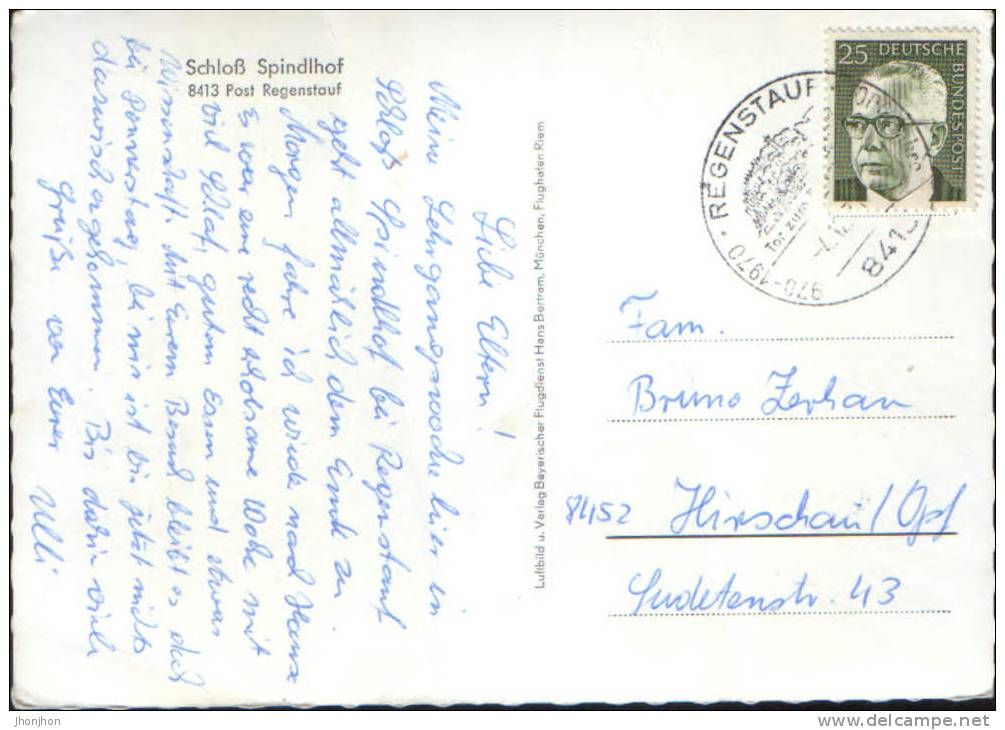 Schloß Spindlhof
8413 Post Regenstauf
Liebe Eltern!
Meine Lehrgangswoche hier in
Schloß Spindlhof bei Regenstauf
geht allmählich dem Ende zu.
Morgen fahre ich wieder nach Hause.
Es war eine recht erholsame Woche mit
viel Schlaf, gutem Essen und etwas
Wissenschaft. Mit Eurem Besuch bleibt es doch
bei Donnerstag, bei mir ist bis jetzt nichts
dazwischengekommen. Bis dahin viele
Grüße von Eurer Ulli
Luftbild u. Verlag Bayerischer Flugdienst Hans Bertram, München, Flughafen Riem
25 DEUTSCHE
BUNDESPOST
REGENSTAUF
970-1970
Tor zum
841
Fam.
Bruno Zerhau
8452 Hirschau/Opf
Sudetenstr. 43
jhonjhon
www.delcampe.net